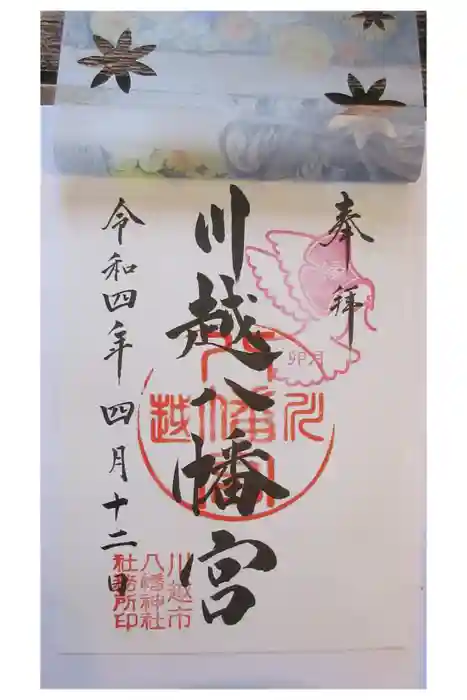 奉拝
川越八幡宮
令和四年四月十二日
卯月
川越
八幡宮
川越市
八幡神社
社務所印